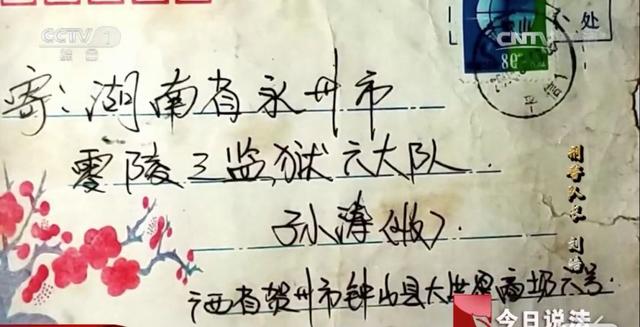 CCTV 1
综合
CNTV
处
80
寄：湖南省永州市
零陵3监狱六大队
孙小涛(收)
广西省贺州市钟山县大世界商场六号
刑事人民
今日说法